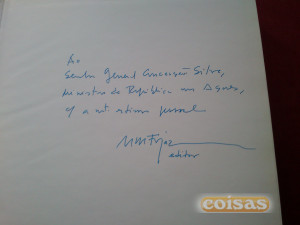 Ao
Senhor General Conceição Silva,
Ministro da República nos Açores,
c/ a estima pessoal
editor
coisas